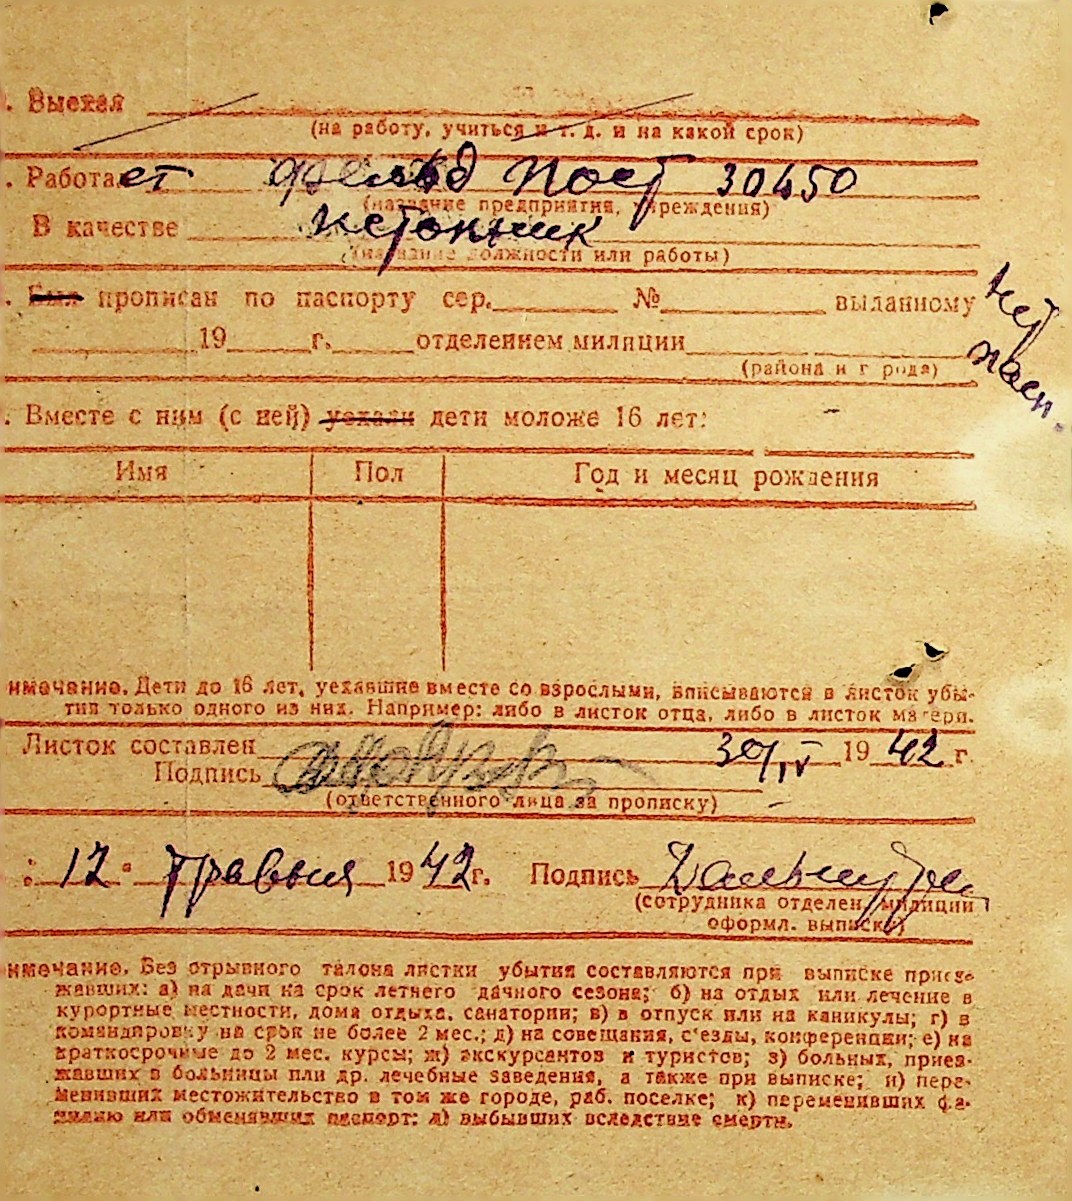 . Выехал
(на работу, учиться и т. д. и на какой срок)
. Работает фельд пост 30450
(название предприятия, учреждения)
В качестве истопник
(название должности или работы)
. Был прописан по паспорту сер. № выданному
нет
19 г. отделением милиции
(района и г рода)
. Вместе с ним (с ней) уехали дети моложе 16 лет: –
Имя Пол Год и месяц рождения
имечание. Дети до 16 лет, уехавшие вместе со взрослыми, вписываются в листок убы-
тия только одного из них. Например: либо в листок отца, либо в листок матери.
Листок составлен 30/IV 1942 г.
Подпись
(ответственного лица за прописку)
: 12 " травня 1942 г. Подпись
(сотрудника отделен. милиции
оформл. выписку)
имечание. Без отрывного талона листки убытия составляются при выписке приез-
жавших: а) на дачи на срок летнего дачного сезона; б) на отдых или лечение в
курортные местности, дома отдыха, санатории; в) в отпуск или на каникулы; г) в
командировку на срок не более 2 мес.; д) на совещания, с'езды, конференции; е) на
краткосрочные до 2 мес. курсы; ж) экскурсантов и туристов; з) больных, приез-
жавших в больницы или др. лечебные заведения, а также при выписке; и) пере-
менивших местожительство в том же городе, раб. поселке; к) переменивших фа-
милию или обменявших паспорт; л) выбывших вследствие смерти.